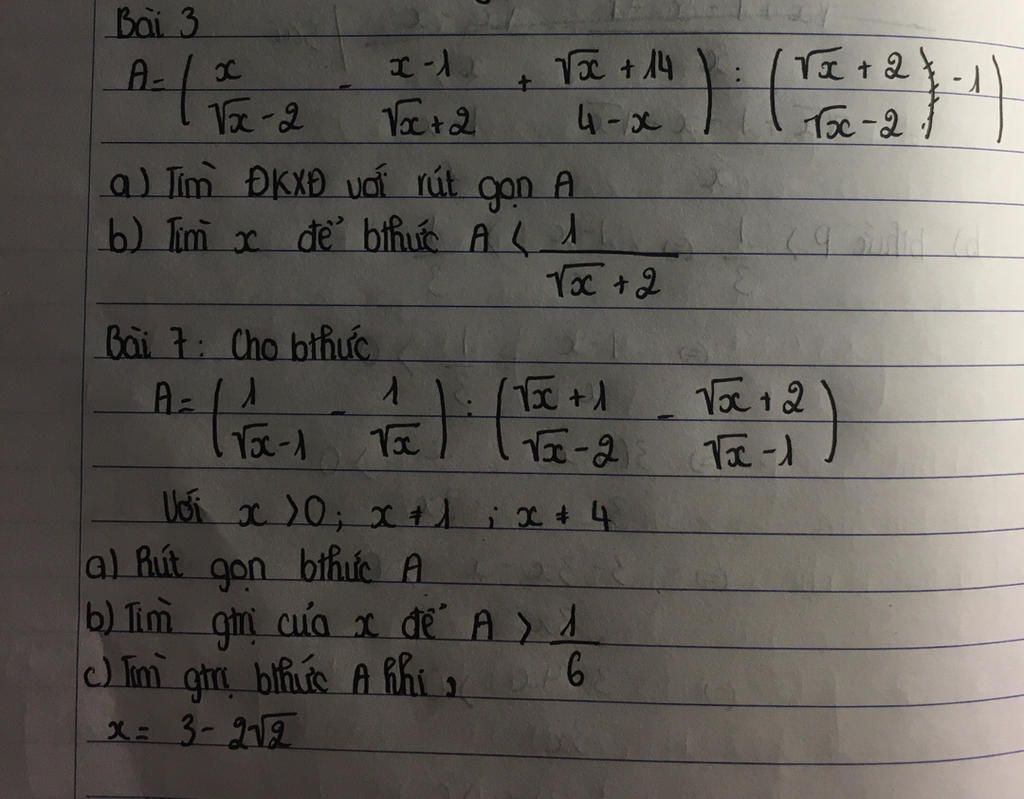 Bài 3
A = ( x/(√x-2) - (x-1)/(√x+2) + (√x+14)/(4-x) ) : ( (√x+2)/(√x-2) - 1 )
a) Tìm ĐKXĐ với rút gọn A
b) Tìm x để bthức A < 1/(√x+2)
Bài 7: Cho bthức
A = ( 1/(√x-1) - 1/√x ) : ( (√x+1)/(√x-2) - (√x+2)/(√x-1) )
Với x > 0; x ≠ 1 ; x ≠ 4
a) Rút gọn bthức A
b) Tìm gtrị của x để A > 1/6
c) Tìm gtrị bthức A khi,
x = 3 - 2√2